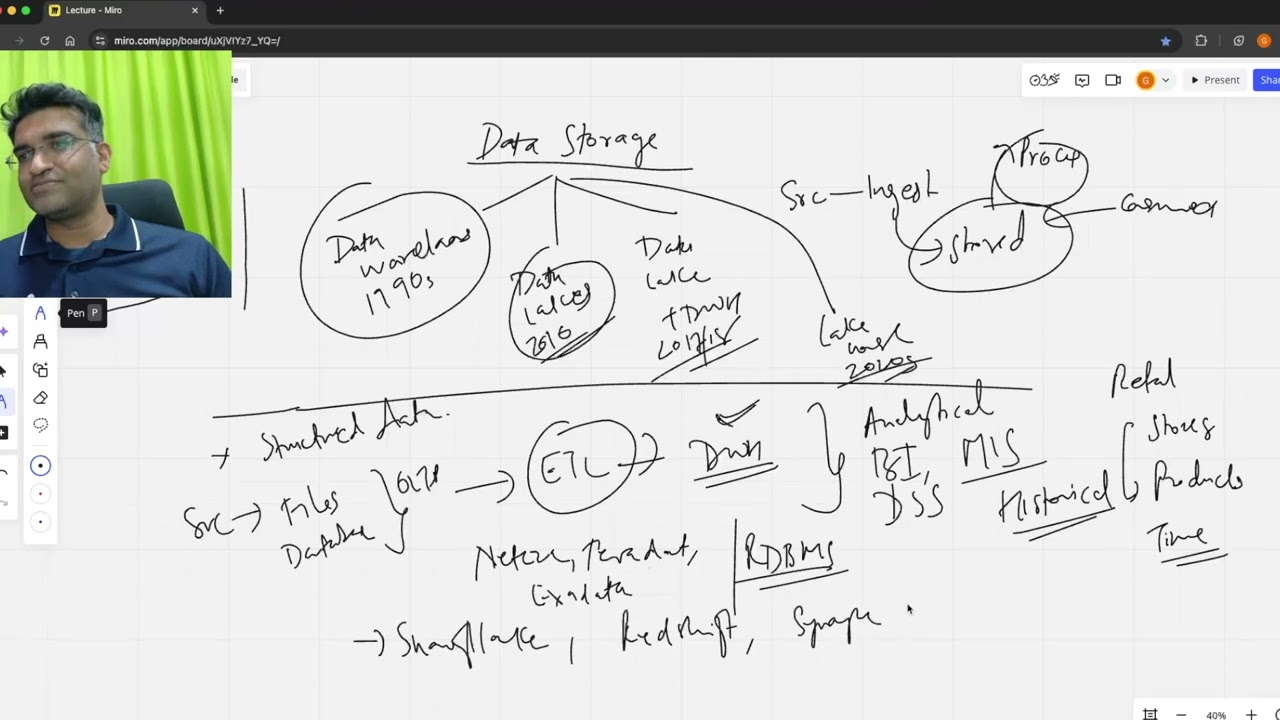 Lecture - Miro
miro.com/app/board/uXjVIYz7_YQ=/
G
Present
Shar
Pen P
Data Storage
Data
warehouse
1990s
Data
Lakes
2010
Data
Lake
+ DWH
2017/18
Lake
house
2020s
Src — Ingest
Stored
Process
Consumer
→ Structured data.
Src → Files
Database
OLTP
→ ETL → DWH
Analytical
BI, MIS
DSS
Historical
Retail
Stores
Products
Time
Netezza, Teradata,
Exadata
RDBMS
→ Snowflake, Redshift, Synapse
40%